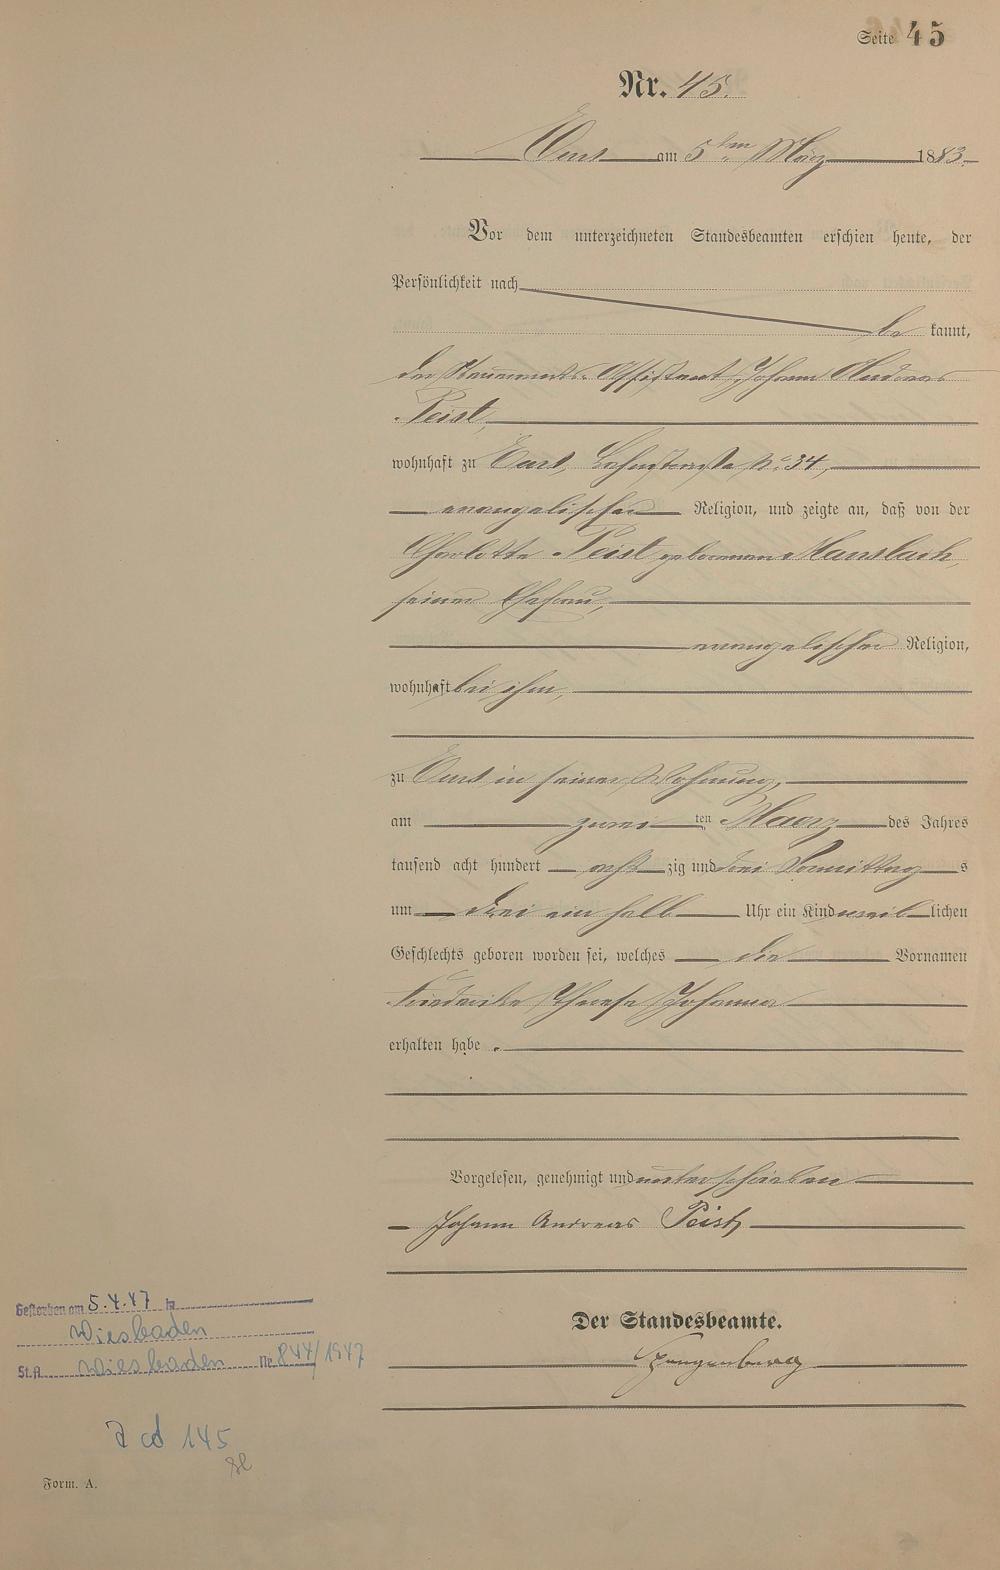 Seite 45
Nr. 45.
Ems am 5ten März 1883.
Vor dem unterzeichneten Standesbeamten erschien heute, der
Persönlichkeit nach
be kannt,
der Steueramts-Assistent Johann Andreas
Peist,
wohnhaft zu Ems, Lahnstraße No 34,
evangelischer Religion, und zeigte an, daß von der
Charlotte Peist geborenen Mansbach,
seiner Ehefrau,
evangelischer Religion,
wohnhaft bei ihm,
zu Ems in seiner Wohnung,
am zwei ten Maerz des Jahres
tausend acht hundert acht zig und drei Vormittag s
um drei ein halb Uhr ein Kind weib lichen
Geschlechts geboren worden sei, welches die Vornamen
Friederike Therese Johanna
erhalten habe.
Vorgelesen, genehmigt und unterschrieben
Johann Andreas Peist
Der Standesbeamte.
Gestorben am 5.4.47 in
Wiesbaden
St.A. Wiesbaden Nr. 844/1947
2 cd 145
Form. A.